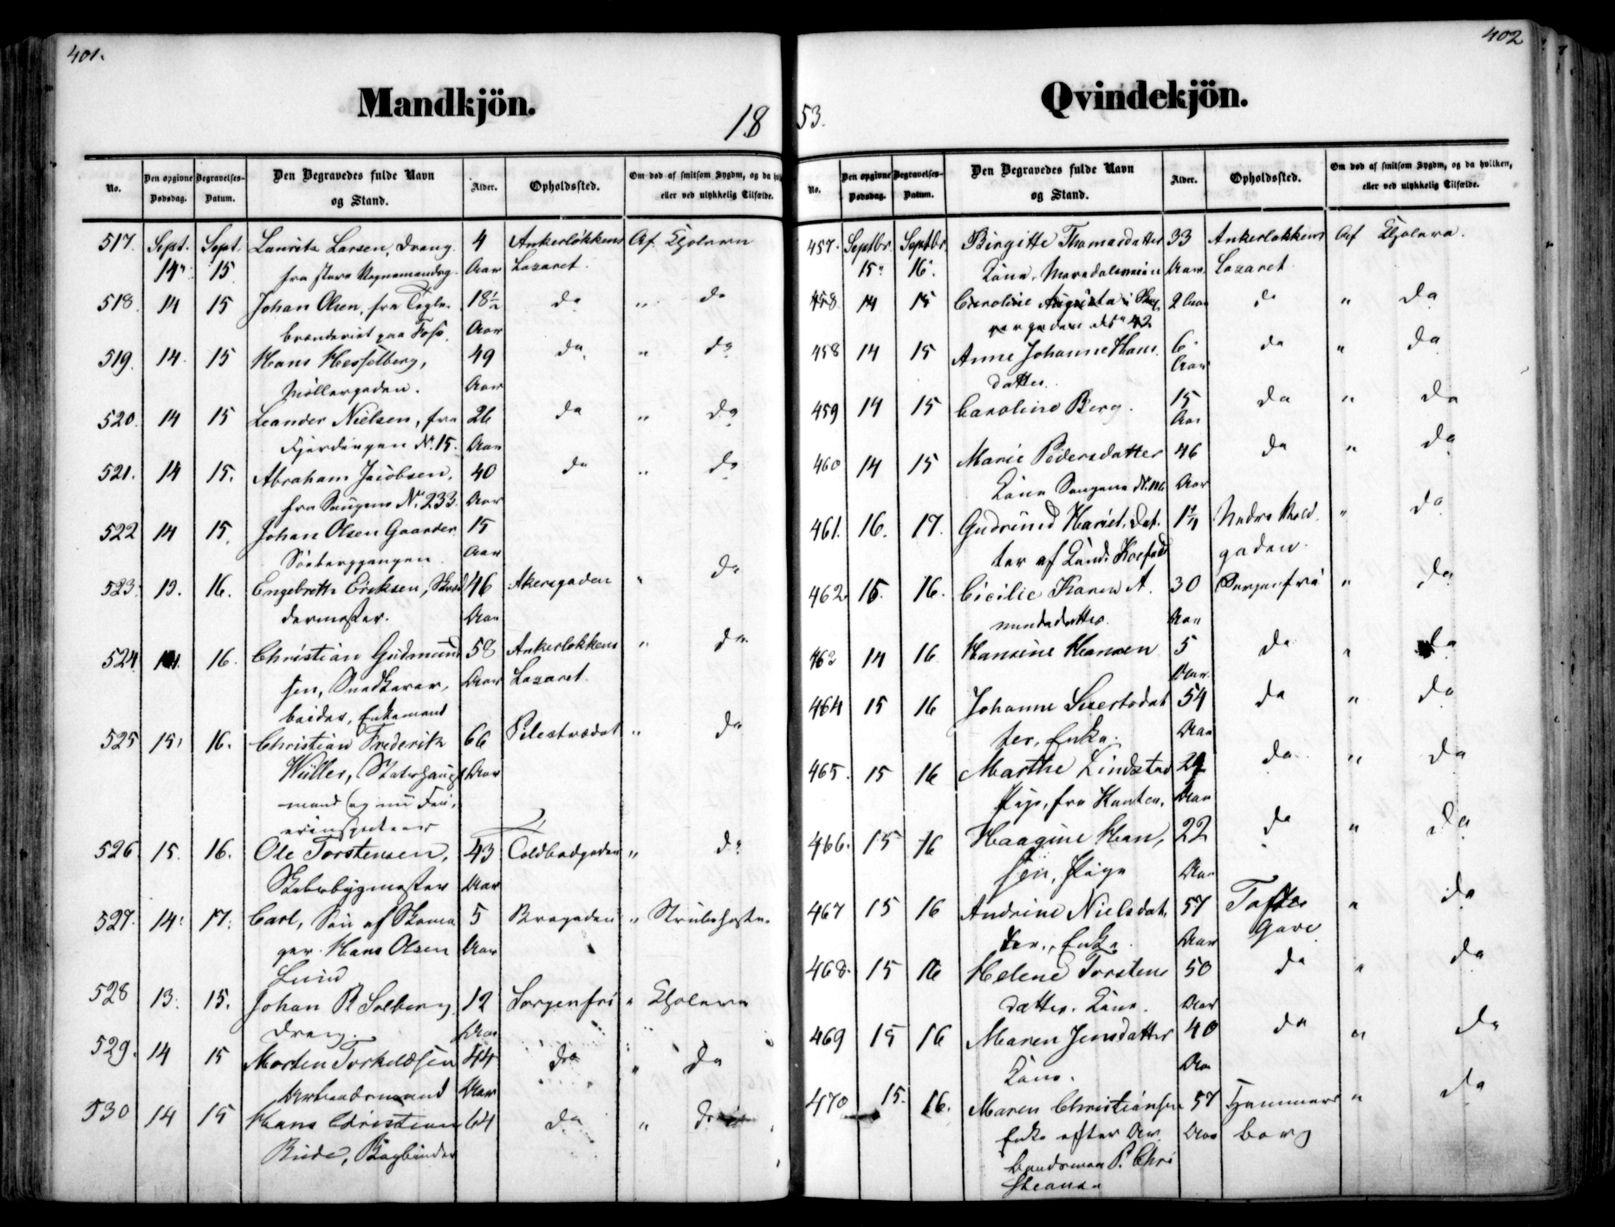 401.
Mandkjön.
18
No.
Den opgivne Dødsdag.
Begravelses-Datum.
Den Begravedes fulde Navn og Stand.
Alder.
Opholdssted.
Om død af smitsom Sygdm, og da hvilken, eller ved ulykkelig Tilfælde.
517. Sept. Sept. Lauritz Larsen, Dreng 4 Ankerløkkens Af Cholera
14 15 fra store Vognmandsg. Aar Lazaret.
518. 14 15 Johan Olsen, fra Tegl- 18½ do " do
brænderiet paa Aar
519. 14. 15 Hans Hesselberg, 49 do " do
Møllergaden. Aar
520. 14 15 Leander Nielsen, fra 26 do " do
Fjerdingen N. 15. Aar
521. 14 15. Abraham Jacobsen, 40 do " do
fra Saugene No. 233. Aar
522 14 15. Johan Olsen Gaarder 15
Aar
523. 13. 16. Engebreth Eriksen, 46 Akersgaden " do
Aar
524 16. Christian Gudmund 58 Ankerløkkens " do
sen, Snedkerar- Aar Lazaret.
beider, Enkemand
525 15 16. Christian Frederik 66 Pilestrædet " do
Müller, Aar
mand og nu
526 15. 16. Ole Torstensen, 43 Toldbodgaden " do
Skibsbygmester Aar
527. 14. 17. Carl, Søn af Skoma 5 Brogaden " Strubehoste.
ger Hans Olsen Aar
Lund
528 13. 15. Johan P. Solberg 12 Sorgenfri " Cholera
Dreng. Aar
529. 14 15 Morten Torkildsen 44 do " do
Arbeidsmand Aar
530 14 15 Hans Christian 64 do "
Bogbinder
402
Qvindekjön.
53.
No.
Den opgivne Dødsdag.
Begravelses-Datum.
Den Begravedes fulde Navn og Stand.
Alder.
Opholdssted.
Om død af smitsom Sygdm, og da hvilken, eller ved ulykkelig Tilfælde.
457. Septbr. Septbr. Birgitte Thomasdatter 33 Ankerløkkens Af Cholera.
15. 16. Kone, Maridalsveien Aar Lazaret
458 14 15 Caroline Augusta i 2 Aar do " do
42
458 14 15 Anne Johanne Hans 6 do " do
datter. Aar
459 14 15 Caroline Berg. 15 do " do
Aar
460 14 15 Marie Pedersdatter 46 do " do
Kone Saugene Aar
461. 16. 17. Gudrund Hariet, Dat- Nedre Vold " do
ter af gaden.
462. 15. 16. Cicilie Karen A. 30 Sorgenfri " do
mundsdatter. Aar
463 14 16 Hansine Hansen 5 do " do
Aar
464 15 16 Johanne Sivertsdat 54 do " do
ter, Enke. Aar
465. 15 16 Marthe Lindstad do " do
Pige, fra Aar
466. 15 16 Haagine Han, 22 do " do
sen, Pige Aar
467 15 16 Andrine Nielsdat, 57 Tøftes " do
ter, Enke. Aar Gave
468. 15 16 Helene Torstens 50 do " do
datter. Kone. Aar
469 15 16 Maren Jensdatter 40 do " do
Kone. Aar
470 15. 16. Maren Christiansen 57 Hammers " do
Enke efter Ar Aar borg
beidsmand P. Chri
stiansen